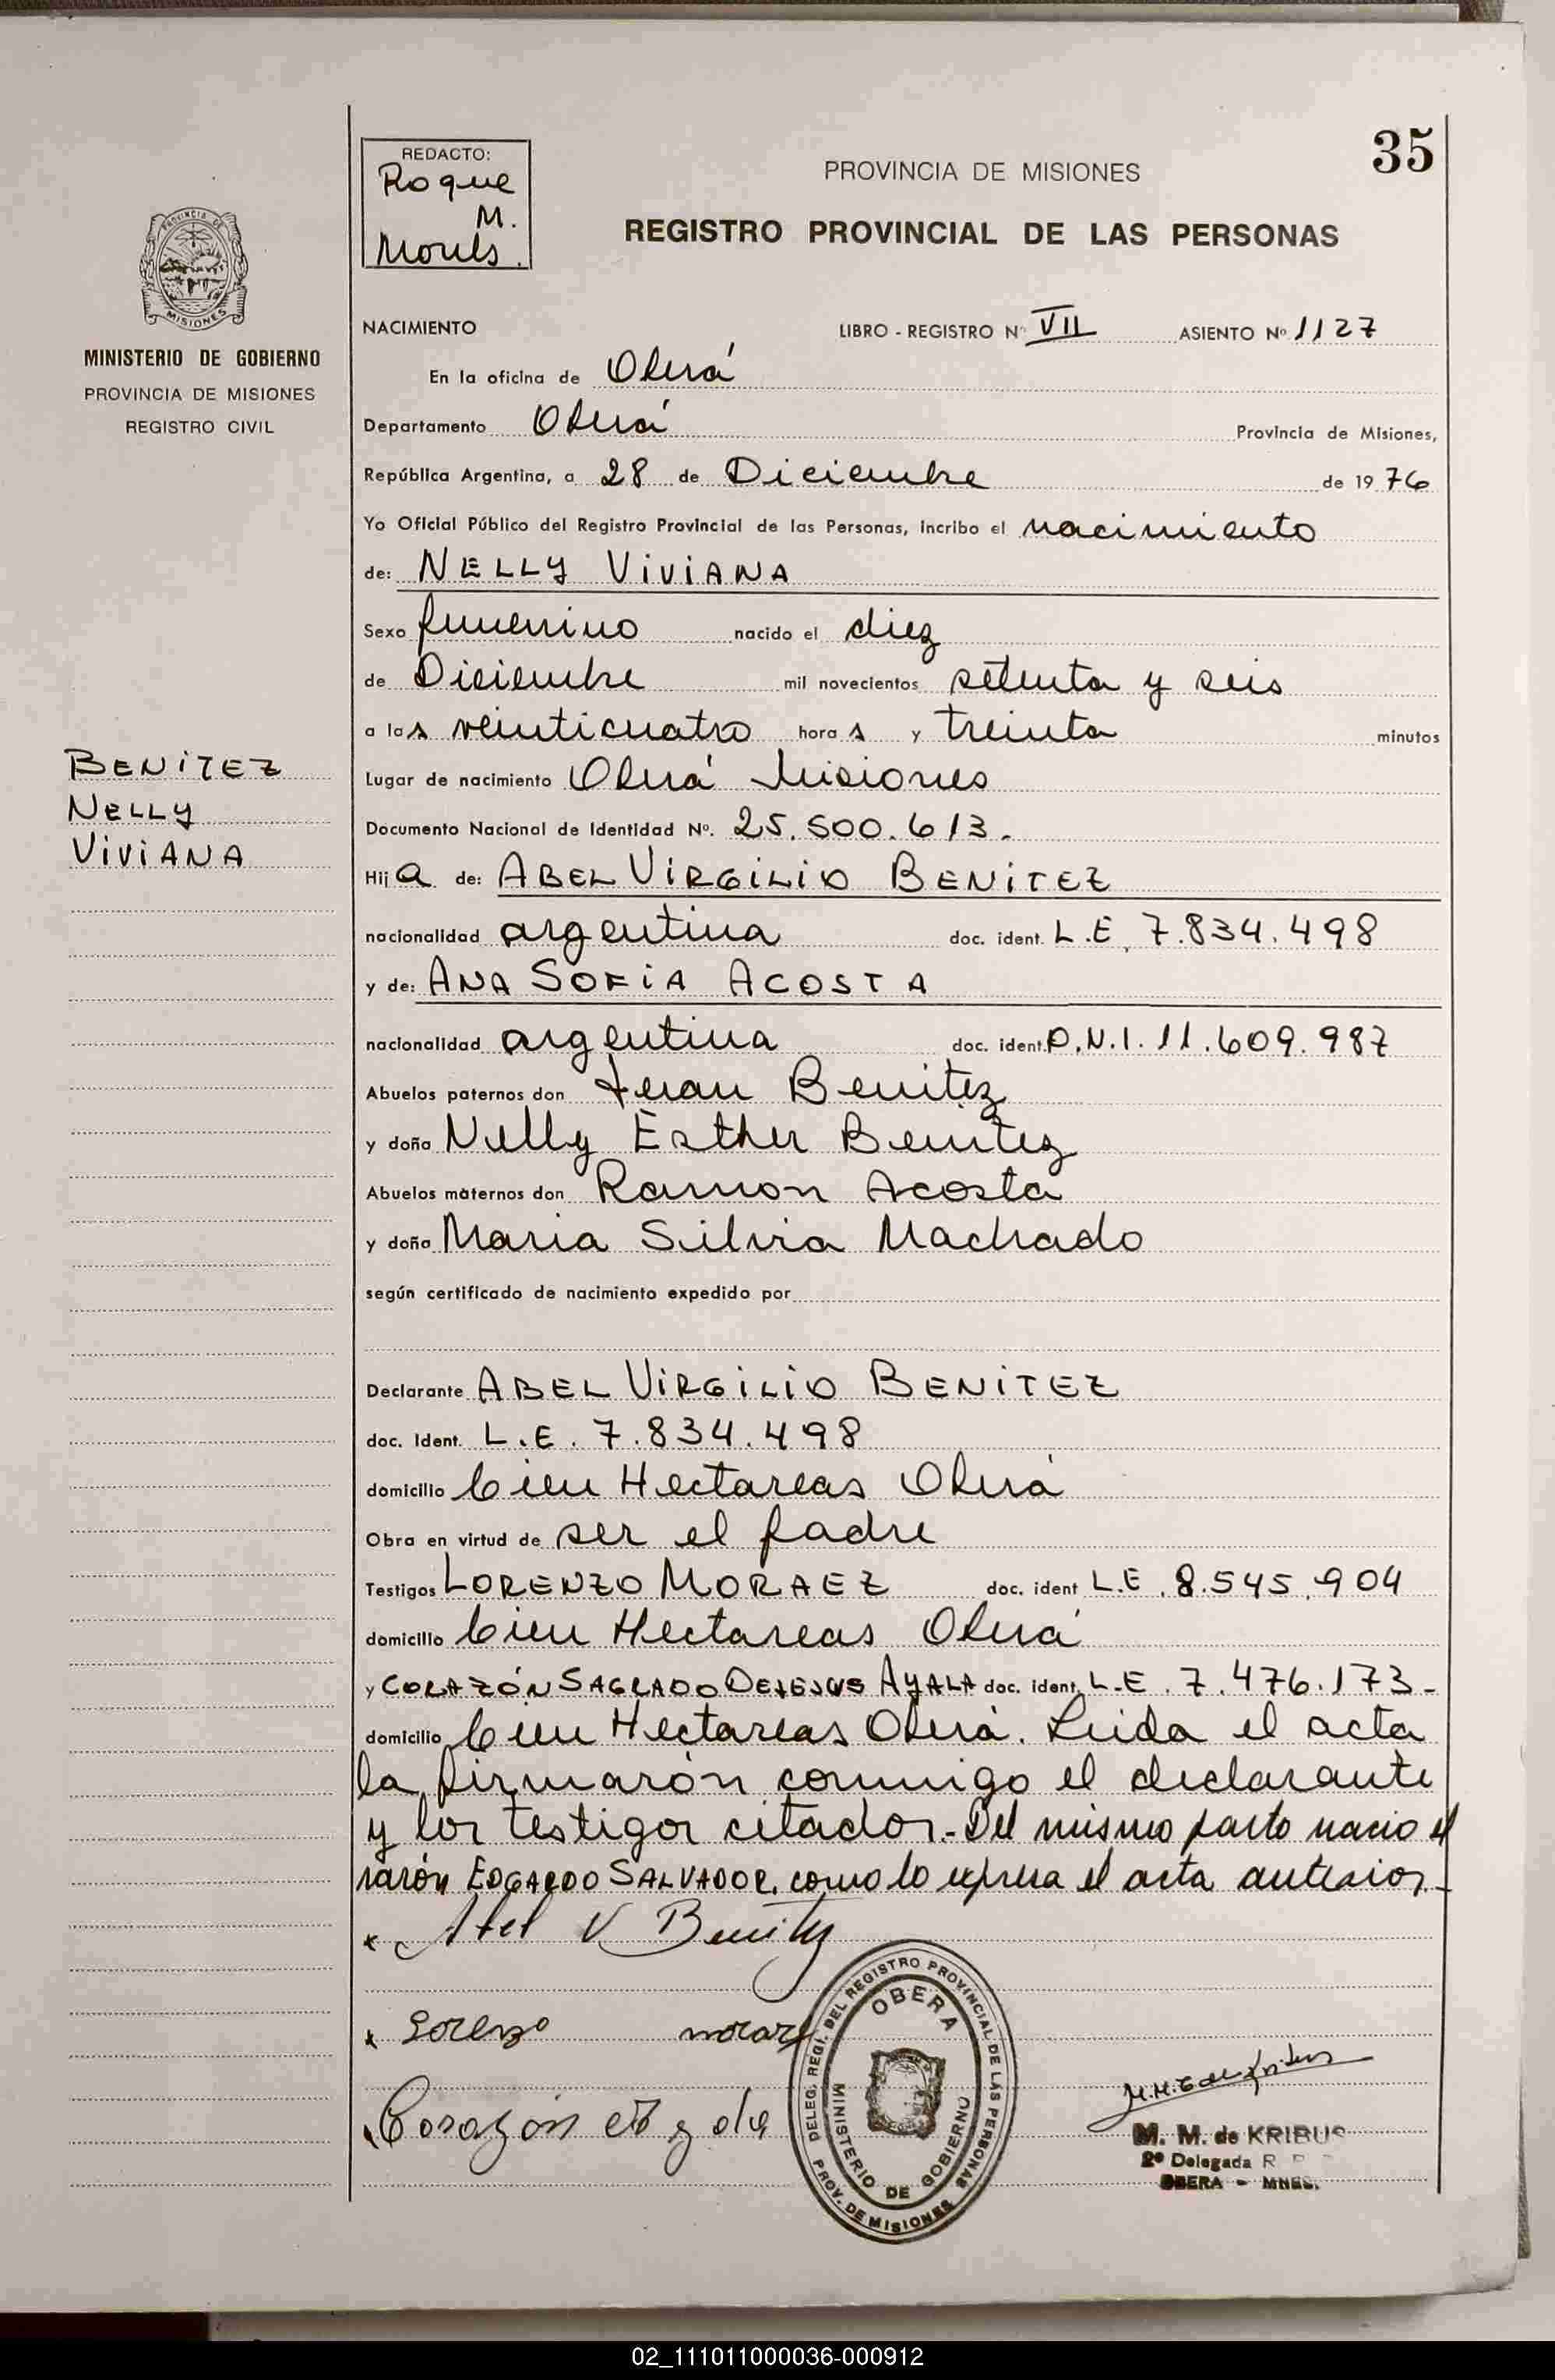 35
REDACTO:
Roque
M.
PROVINCIA DE MISIONES
REGISTRO PROVINCIAL DE LAS PERSONAS
PROVINCIA DE
MISIONES
MINISTERIO DE GOBIERNO
PROVINCIA DE MISIONES
REGISTRO CIVIL
BENiTEZ
NELLY
ViViANA
NACIMIENTO LIBRO - REGISTRO Nº VII ASIENTO Nº 1127
En la oficina de Oberá
Departamento Oberá Provincia de Misiones,
República Argentina, a 28 de Diciembre de 1976
Yo Oficial Público del Registro Provincial de las Personas, incribo el nacimiento
de: NELLY ViViANA
Sexo femenino nacido el diez
de Diciembre mil novecientos setenta y seis
a las veinticuatro horas y treinta minutos
Lugar de nacimiento Oberá Misiones
Documento Nacional de Identidad Nº. 25.500.613.
Hija de: ABEL ViRGiLiO BENiTEZ
nacionalidad argentina doc. ident. L.E. 7.834.498
y de: ANA SOFiA ACOSTA
nacionalidad argentina doc. ident. D.N.I. 11.609.987
Abuelos paternos don Juan Benitez
y doña Nelly Esther Benitez
Abuelos maternos don Ramon Acosta
y doña Maria Silvia Machado
según certificado de nacimiento expedido por
Declarante ABEL ViRGiLiO BENiTEZ
doc. Ident. L.E. 7.834.498
domicilio Cien Hectareas Oberá
Obra en virtud de ser el padre
Testigos LORENZO MORAEZ doc. ident L.E. 8.545.904
domicilio Cien Hectareas Oberá
y CORAZÓN SAGRADO DEJESUS AYALA doc. ident. L.E. 7.476.173-
domicilio Cien Hectareas Oberá. Leida el acta
la firmarón conmigo el declarante
y los testigos citados.- Del mismo parto nacio el
varón EDGARDO SALVADOR, como lo expresa el acta anterior.-
Abel V Benitez
Lorenzo
Corazón
DELEG. REGI. DEL REGISTRO PROVINCIAL DE LAS PERSONAS
OBERA
MINISTERIO DE GOBIERNO
PROV. DE MISIONES
M. M. de KRIBUS
2º Delegada R
OBERA - MNES.
02_111011000036-000912